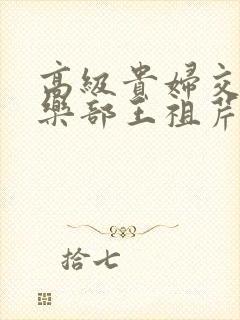 高級貴婦交
樂部王祖芹
拾七